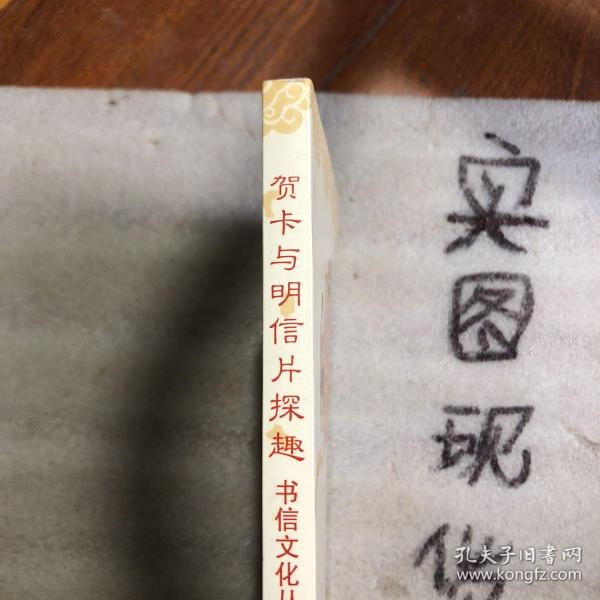 贺卡与明信片探趣 书信文化
实图现
孔夫子旧书网
www.kongfz.com